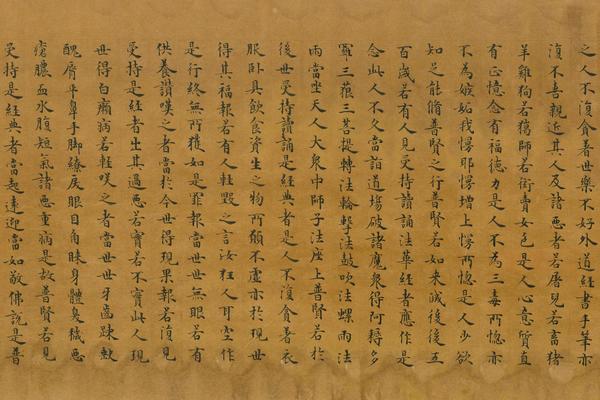 之人不復貪著世樂不好外道經書手筆亦
復不喜親近其人及諸惡者若屠兒若畜猪
羊雞狗若獦師若衒賣女色是人心意質直
有正憶念有福德力是人不為三毒所惱亦
不為嫉妬我慢耶慢增上慢所惱是人少欲
知足能脩普賢之行普賢若如来滅後後五
百歲若有人見受持讀誦法華經者應作是
念此人不久當詣道場破諸魔衆得阿耨多
羅三藐三菩提轉法輪擊法鼓吹法螺雨法
雨當坐天人大衆中師子法座上普賢若於
後世受持讀誦是經典者是人不復貪著衣
服卧具飲食資生之物所願不虛亦於現世
得其福報若有人輕毀之言汝狂人耳空作
是行終無所獲如是罪報當世世無眼若有
供養讚嘆之者當於今世得現果報若復見
受持是經者出其過惡若實若不實此人現
世得白癩病若輕咲之者當世世牙齒踈缺
醜脣平鼻手脚繚戾眼目角睞身體臭穢惡
瘡膿血水腹短氣諸惡重病是故普賢若見
受持是經典者當起遠迎當如敬佛說是普